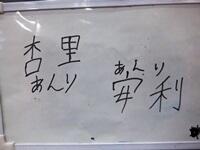 杏里
あんり
あんり
安利